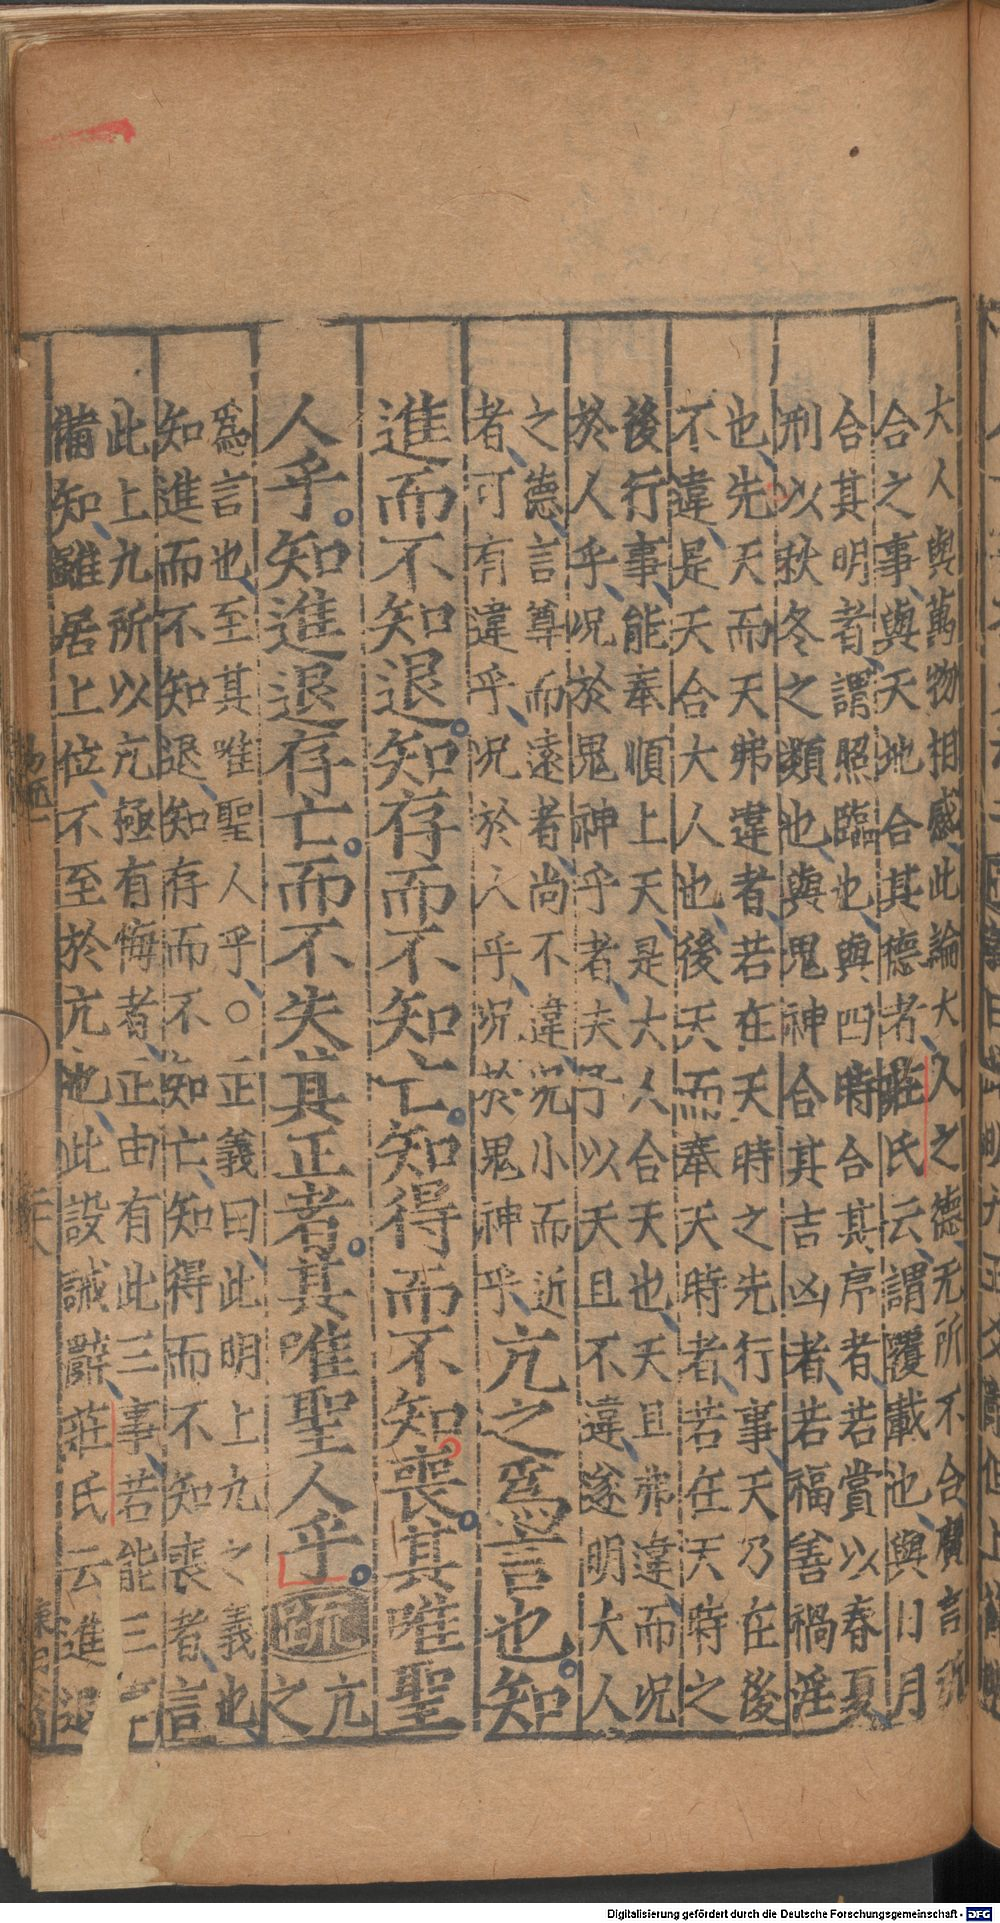 大人與萬物相感此論大人之德无所不合廣言所
合之事與天地合其德者莊氏云謂覆載也與日月
合其明者謂照臨也與四時合其序者若賞以春夏
刑以秋冬之類也與鬼神合其吉凶者若福善禍淫
也先天而天弗違者若在天時之先行事天乃在後
不違是天合大人也後天而奉天時者若在天時之
後行事能奉順上天是大人合天也天且弗違而況
於人乎況於鬼神乎者夫子以天且不違遂明大人
之德言尊而遠者尚不違況小而近
者可有違乎況於人乎況於鬼神乎亢之爲言也知
進而不知退知存而不知亡知得而不知喪其唯聖
人乎知進退存亡而不失其正者其唯聖人乎疏亢
之
爲言也至其唯聖人乎〇正義曰此明上九之義也
知進而不知退知存而不知亡知得而不知喪者言
此上九所以亢極有悔者正由有此三事若能三
備知雖居上位不至於亢也此設誡辭莊氏云進退
Digitalisierung gefördert durch die Deutsche Forschungsgemeinschaft - DFG